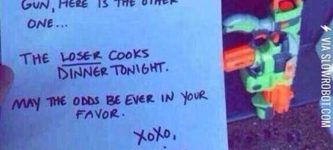 GUN, HERE IS THE OTHER
ONE...
THE LOSER COOKS
DINNER TONIGHT.
MAY THE ODDS BE EVER IN YOUR
FAVOR.
XOXO,
VIA SLOWROBOT.COM